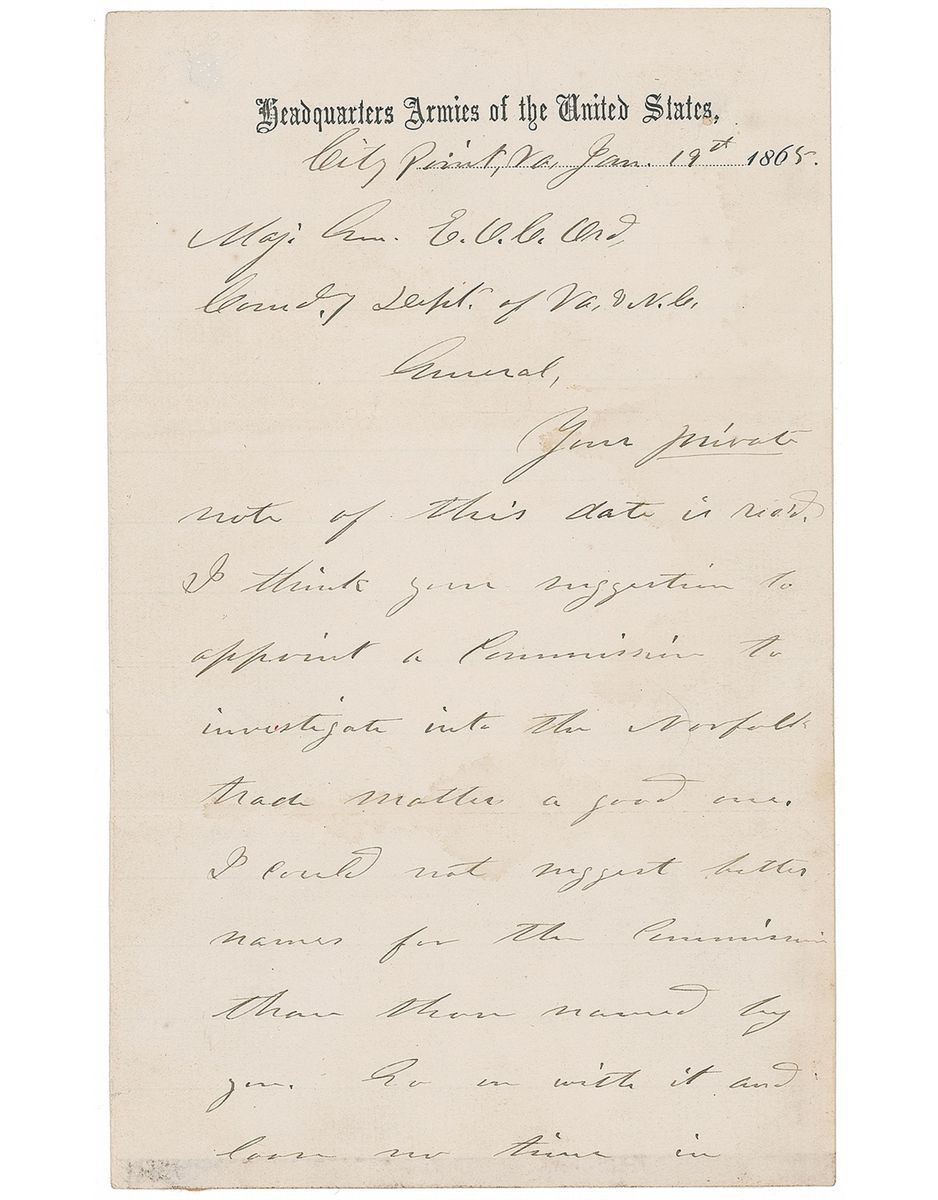 Headquarters Armies of the United States,
City Point, Va, Jan. 19th 1865.
Maj. Gen. E. O. C. Ord,
Comd.g Dept. of Va. & N.C.
General,
Your private
note of this date is rec'd.
I think your suggestion to
appoint a Commission to
investigate into the Norfolk
trade matter a good one.
I could not suggest better
names for the Commission
than those named by
you. Go on with it and
loose no time in